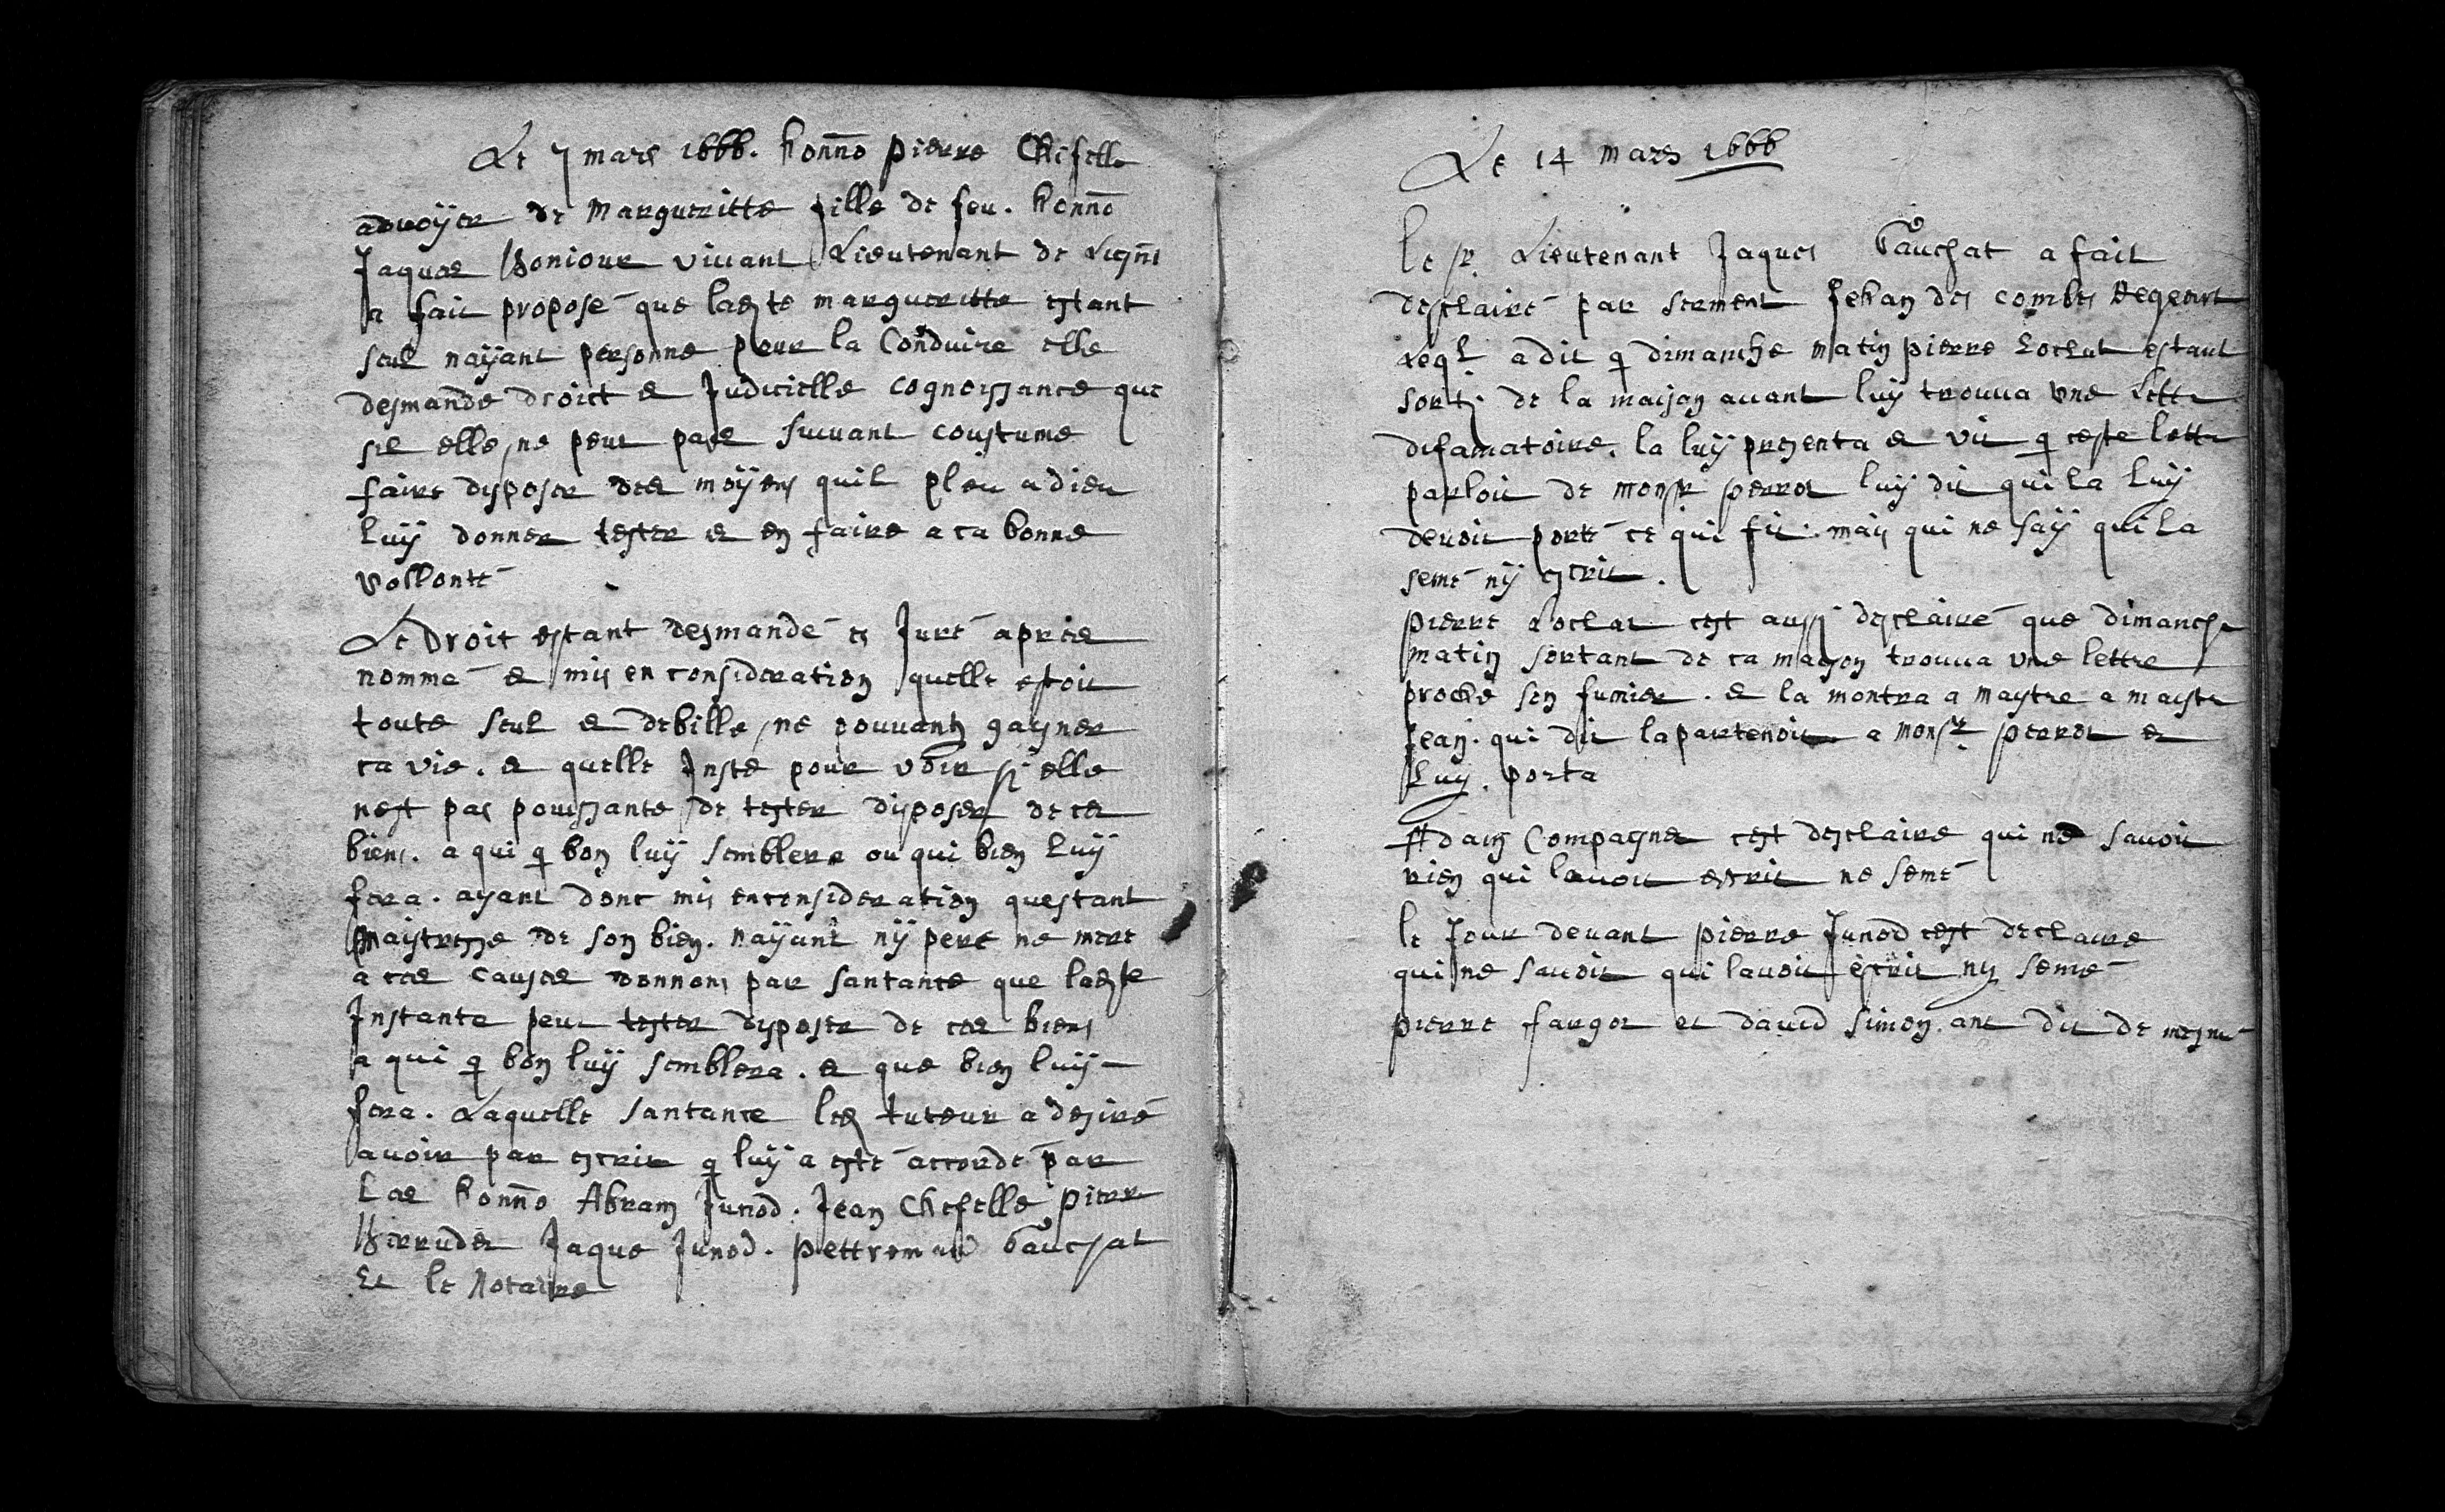 Le 7 mars 1666. honno pierre Chifelle
advoÿer de Margueritte fille de feu. honno
Jaques Boniour viuant Lieutenant de Lign
a fait proposé que ladte margueritte estant
seul naÿant personne pour la Conduire elle
desmande droict et Judicielle cognoissance que
sil elle ne peut pas suiuant coustume
faire disposer des moÿens quil pleu a dieu
luÿ donner tester et en faire a ca bonne
vollonté
Le Droit estant desmandé es Juré apres
nommé et mis en consideration quelle estoit
toute seul et debille ne pouuant gaÿner
ca vie. et quelle Inste pour voir si elle
nest pas pouissante de tester disposer de ces
biens. a qui q bon luÿ semblera ou qui bien luÿ
fera. aÿant donc mis en consideration questant
maistresse de son bien. naÿant nÿ pere ne mere
a ces causes donnons par santance que ladte
Instante peut tester disposer de ces biens
a qui q bon luÿ semblera. et que bien luÿ
fera. Laquelle santance led tuteur a desiré
auoir par escrit q luÿ a esté accordé par
Les honno Abram Junod. Jean Chifelle pierre
Jaque Junod. pettremand Gauchat
Et le Notaire
Le 14 mars 1666
le sr Lieutenant Jaques Gauchat a fait
desclairé par serment Jehan des combes
Leql a dit q dimanche matin pierre Loclat estant
sorti de la maison auant luÿ trouua vne lettre
difamatoire. la luÿ presenta et vit q ceste lettre
parloit de monsr perrot luÿ dit qui la luÿ
deuoit porté ce qui fit. mais qui ne saÿ qui la
semé nÿ escrit.
pierre Loclat cest aussi desclairé que dimanche
matin sortant de ca maison trouua vne lettre
proche son fumier. et la montra a maystre a maystre
Jean. qui dit lapartenoit a monsr perrot et
luy. porta
Adam Compagner cest desclairé qui ne sauoit
rien qui lauoit escrit ne semé
le Jour deuant pierre Junod cest declairé
qui ne sauoit qui lauoit escrit ny semé
pierre fargot et david simon. ant dit de mesme